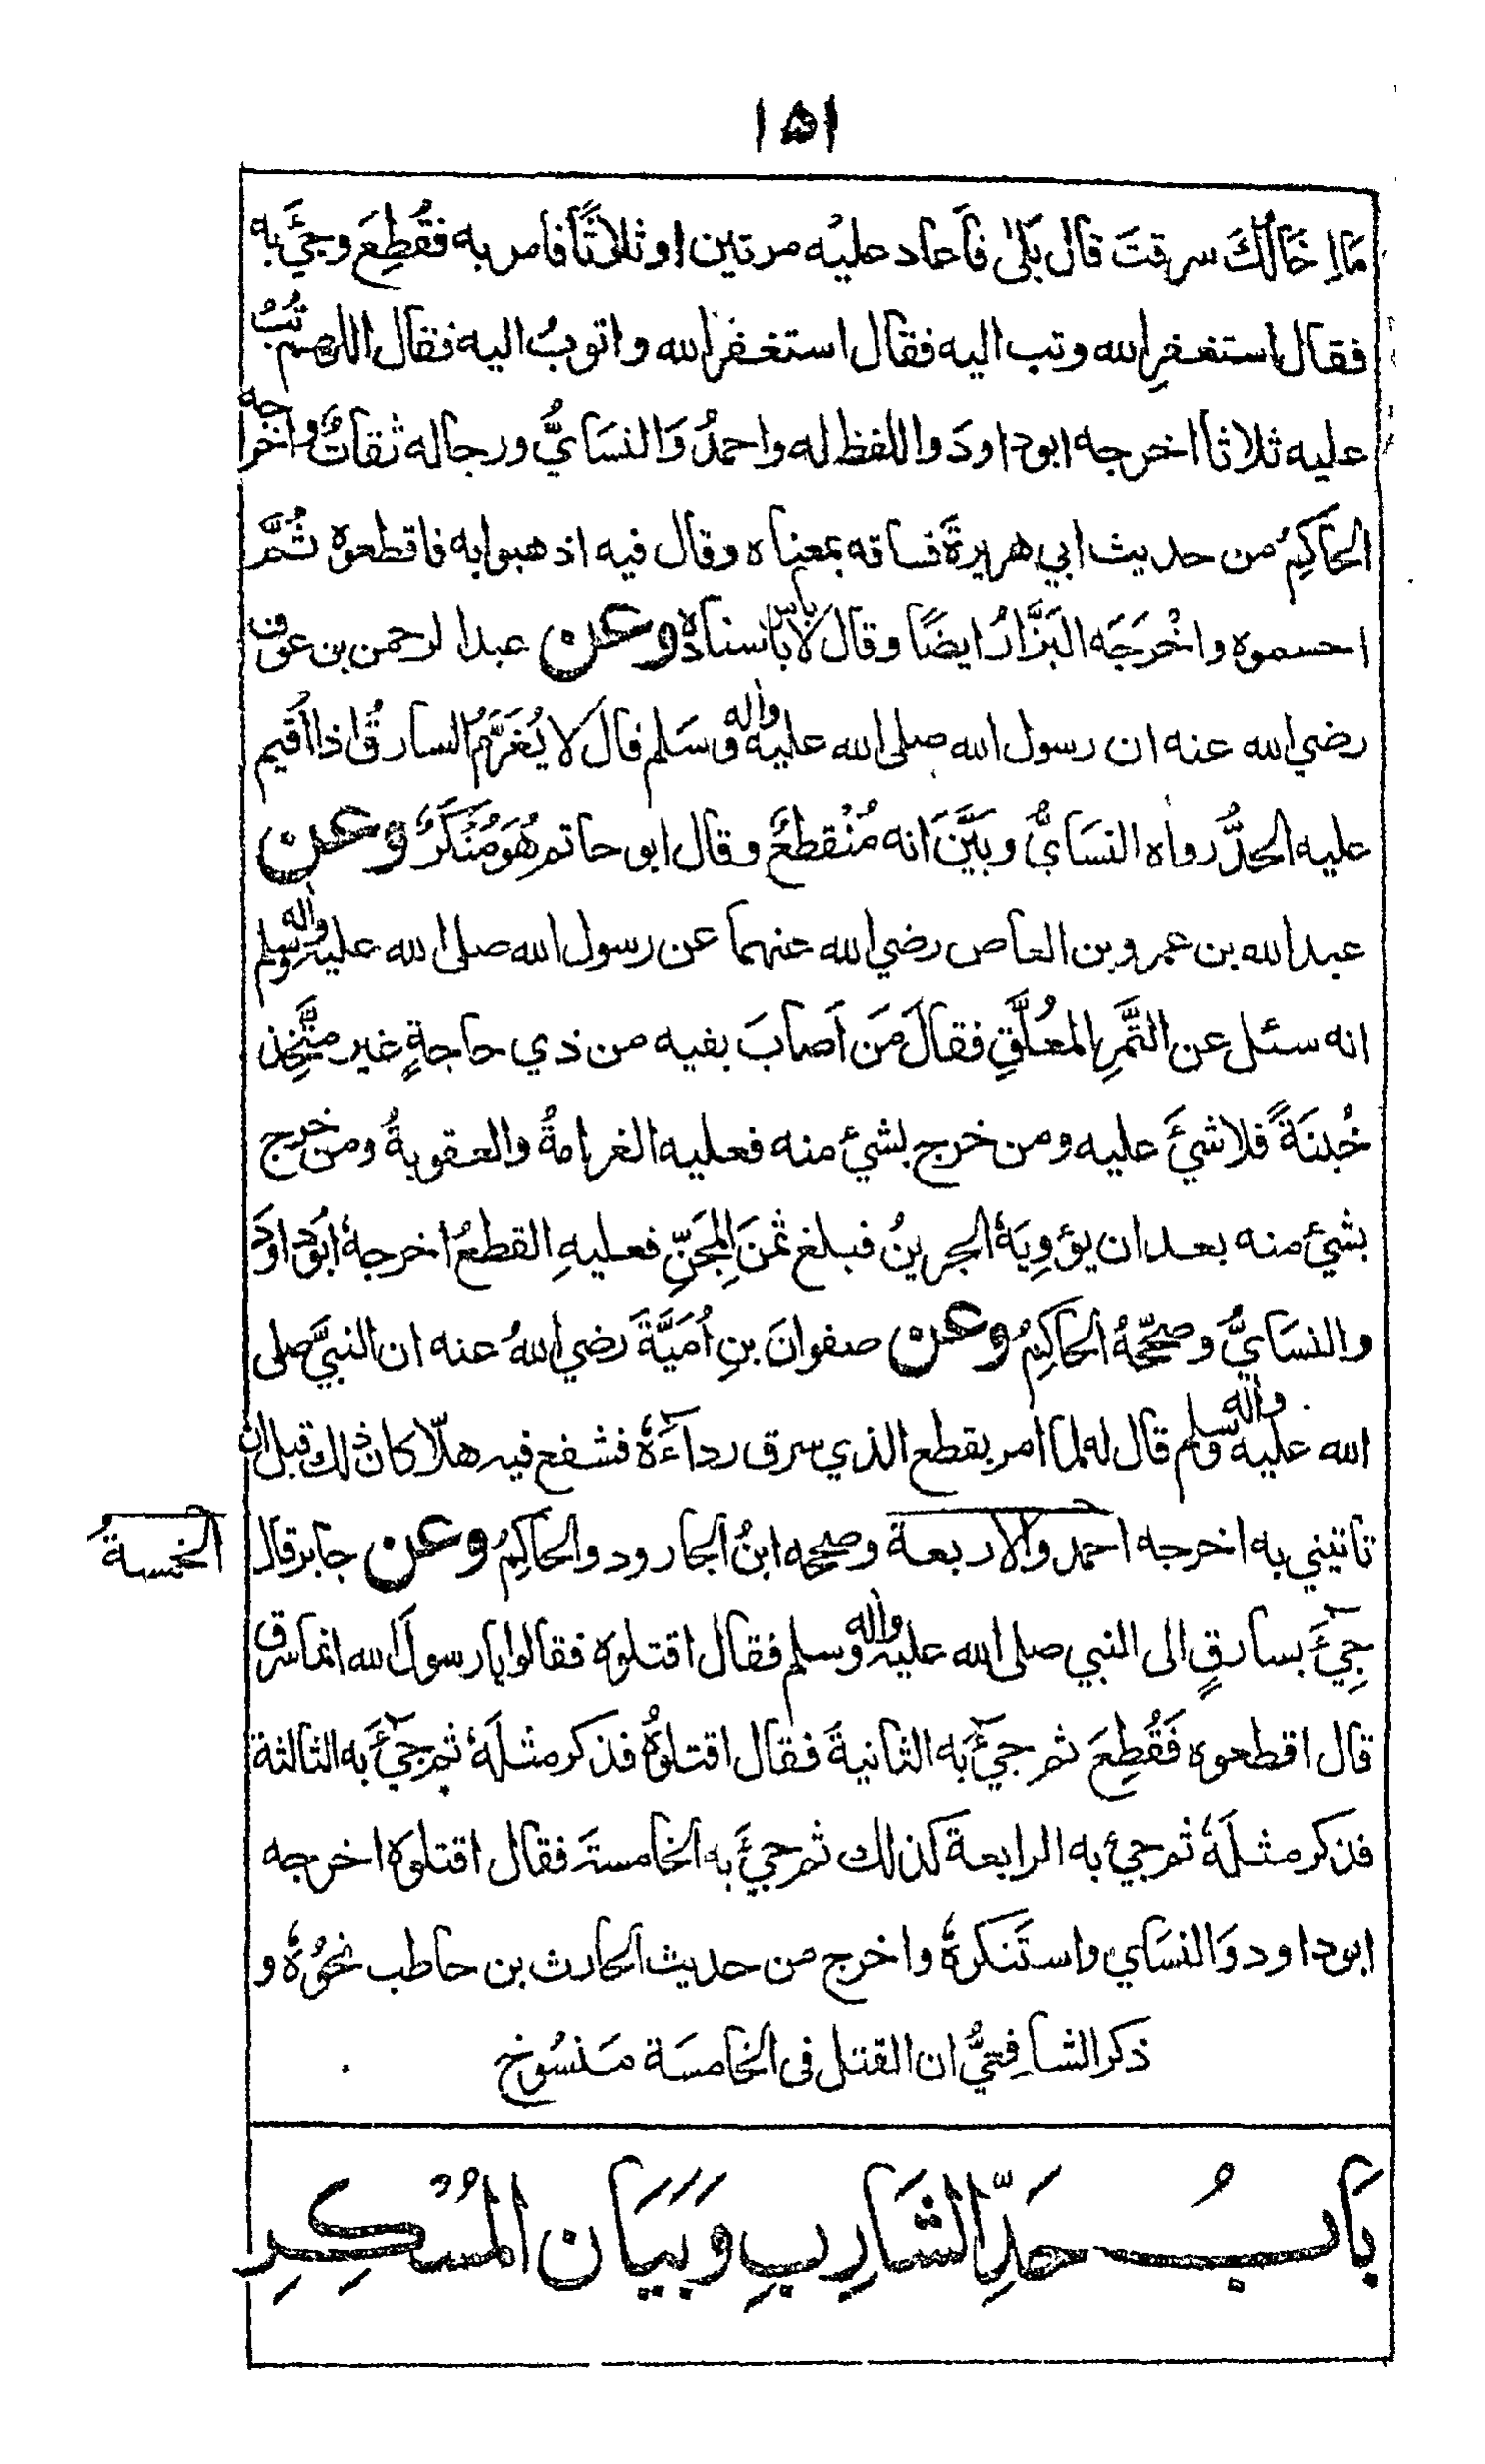 ١٥١
مَا اِخَالُكَ سرقتَ قال بَلىٰ فَاَعاد عليْه مرتين او ثلاثًا فامر به فقُطِعَ وجئَ به
فقال استغفرِ الله وتب اليه فقال استغفرُ الله واتوبُ اليه فقال اللهم تُبْ
عليه ثلاثا اخرجه ابوداودَ واللفظ له واحمدُ وَالنسَايُّ ورجاله ثقاتٌ واخرجه
الحاكِمُ من حديث ابي هريرةَ فساقه بمعناه وقال فيه اذهبوا به فاقطعوه ثُمَّ
احسموه واخْرَجَه البَزَّارُ ايضًا وقال لا باس باسناده وعن عبد الرحمن بن عوف
رضي الله عنه ان رسول الله صلى الله عليه واله وسَلم قال لا يُغَرَّمُ السارقُ اذا اُقيم
عليه الحدُّ رواه النسَايُّ وبَيَّنَ انه مُنْقطعٌ وقال ابو حاتم هُوَ مُنْكَرٌ وعن
عبد الله بن عمرو بن العاص رضي الله عنهما عن رسول الله صلى الله عليه واله وسلم
انه سئل عن التَّمَرِ المعُلَّقِ فقالَ مَن اَصابَ بفيه من ذي حاجةٍ غير متَّخِذ
خُبنَةً فلا شئَ عليه ومن خرج بشئ منه فعليه الغرامةُ والعقوبةُ ومن خرج
بشئ منه بعد ان يؤوِيَهُ الجرينُ فبلغ ثمنَ المِجَنِّ فعليهِ القطعُ اخرجهُ ابَوداودَ
والنسَايُّ وصحّحَهُ الحاكِمُ وعن صفوانَ بنِ اُمَيَّةَ رضي اللهُ عنه ان النبيَّ صلى
الله عليه واله وسلم قال له لما امر بقطع الذي سرق رداءَهُ فشفع فيه هلّا كان ذلك قبل ان
تاتيني به اخرجه احمد والاربعة وصححه ابنُ الجارود والحاكِمُ وعن جابر قال
الخمسةُ
جِئَ بسارقٍ الى النبي صلى الله عليه واله وسلم فقال اقتلوه فقالوا يا رسولَ الله انما سرق
قال اقطعوه فَقُطِعَ ثم جئَ به الثانيةَ فقال اقتلوُه فذكر مثلَهُ ثم جئَ به الثالثة
فذكر مثلَهُ ثم جئ به الرابعة كذلك ثم جئَ به الخامسة فقال اقتلوه اخرجه
ابوداود وَالنسَاي واستَنكرهُ واخرج من حديث الحارث بن حاطب نحوُهُ و
ذكر الشافِعيُّ ان القتل فى الخامسَة مَنسُوخ
بَابُ حَدِّ الشَارِبِ وَبَيَان المُسْكِرِ